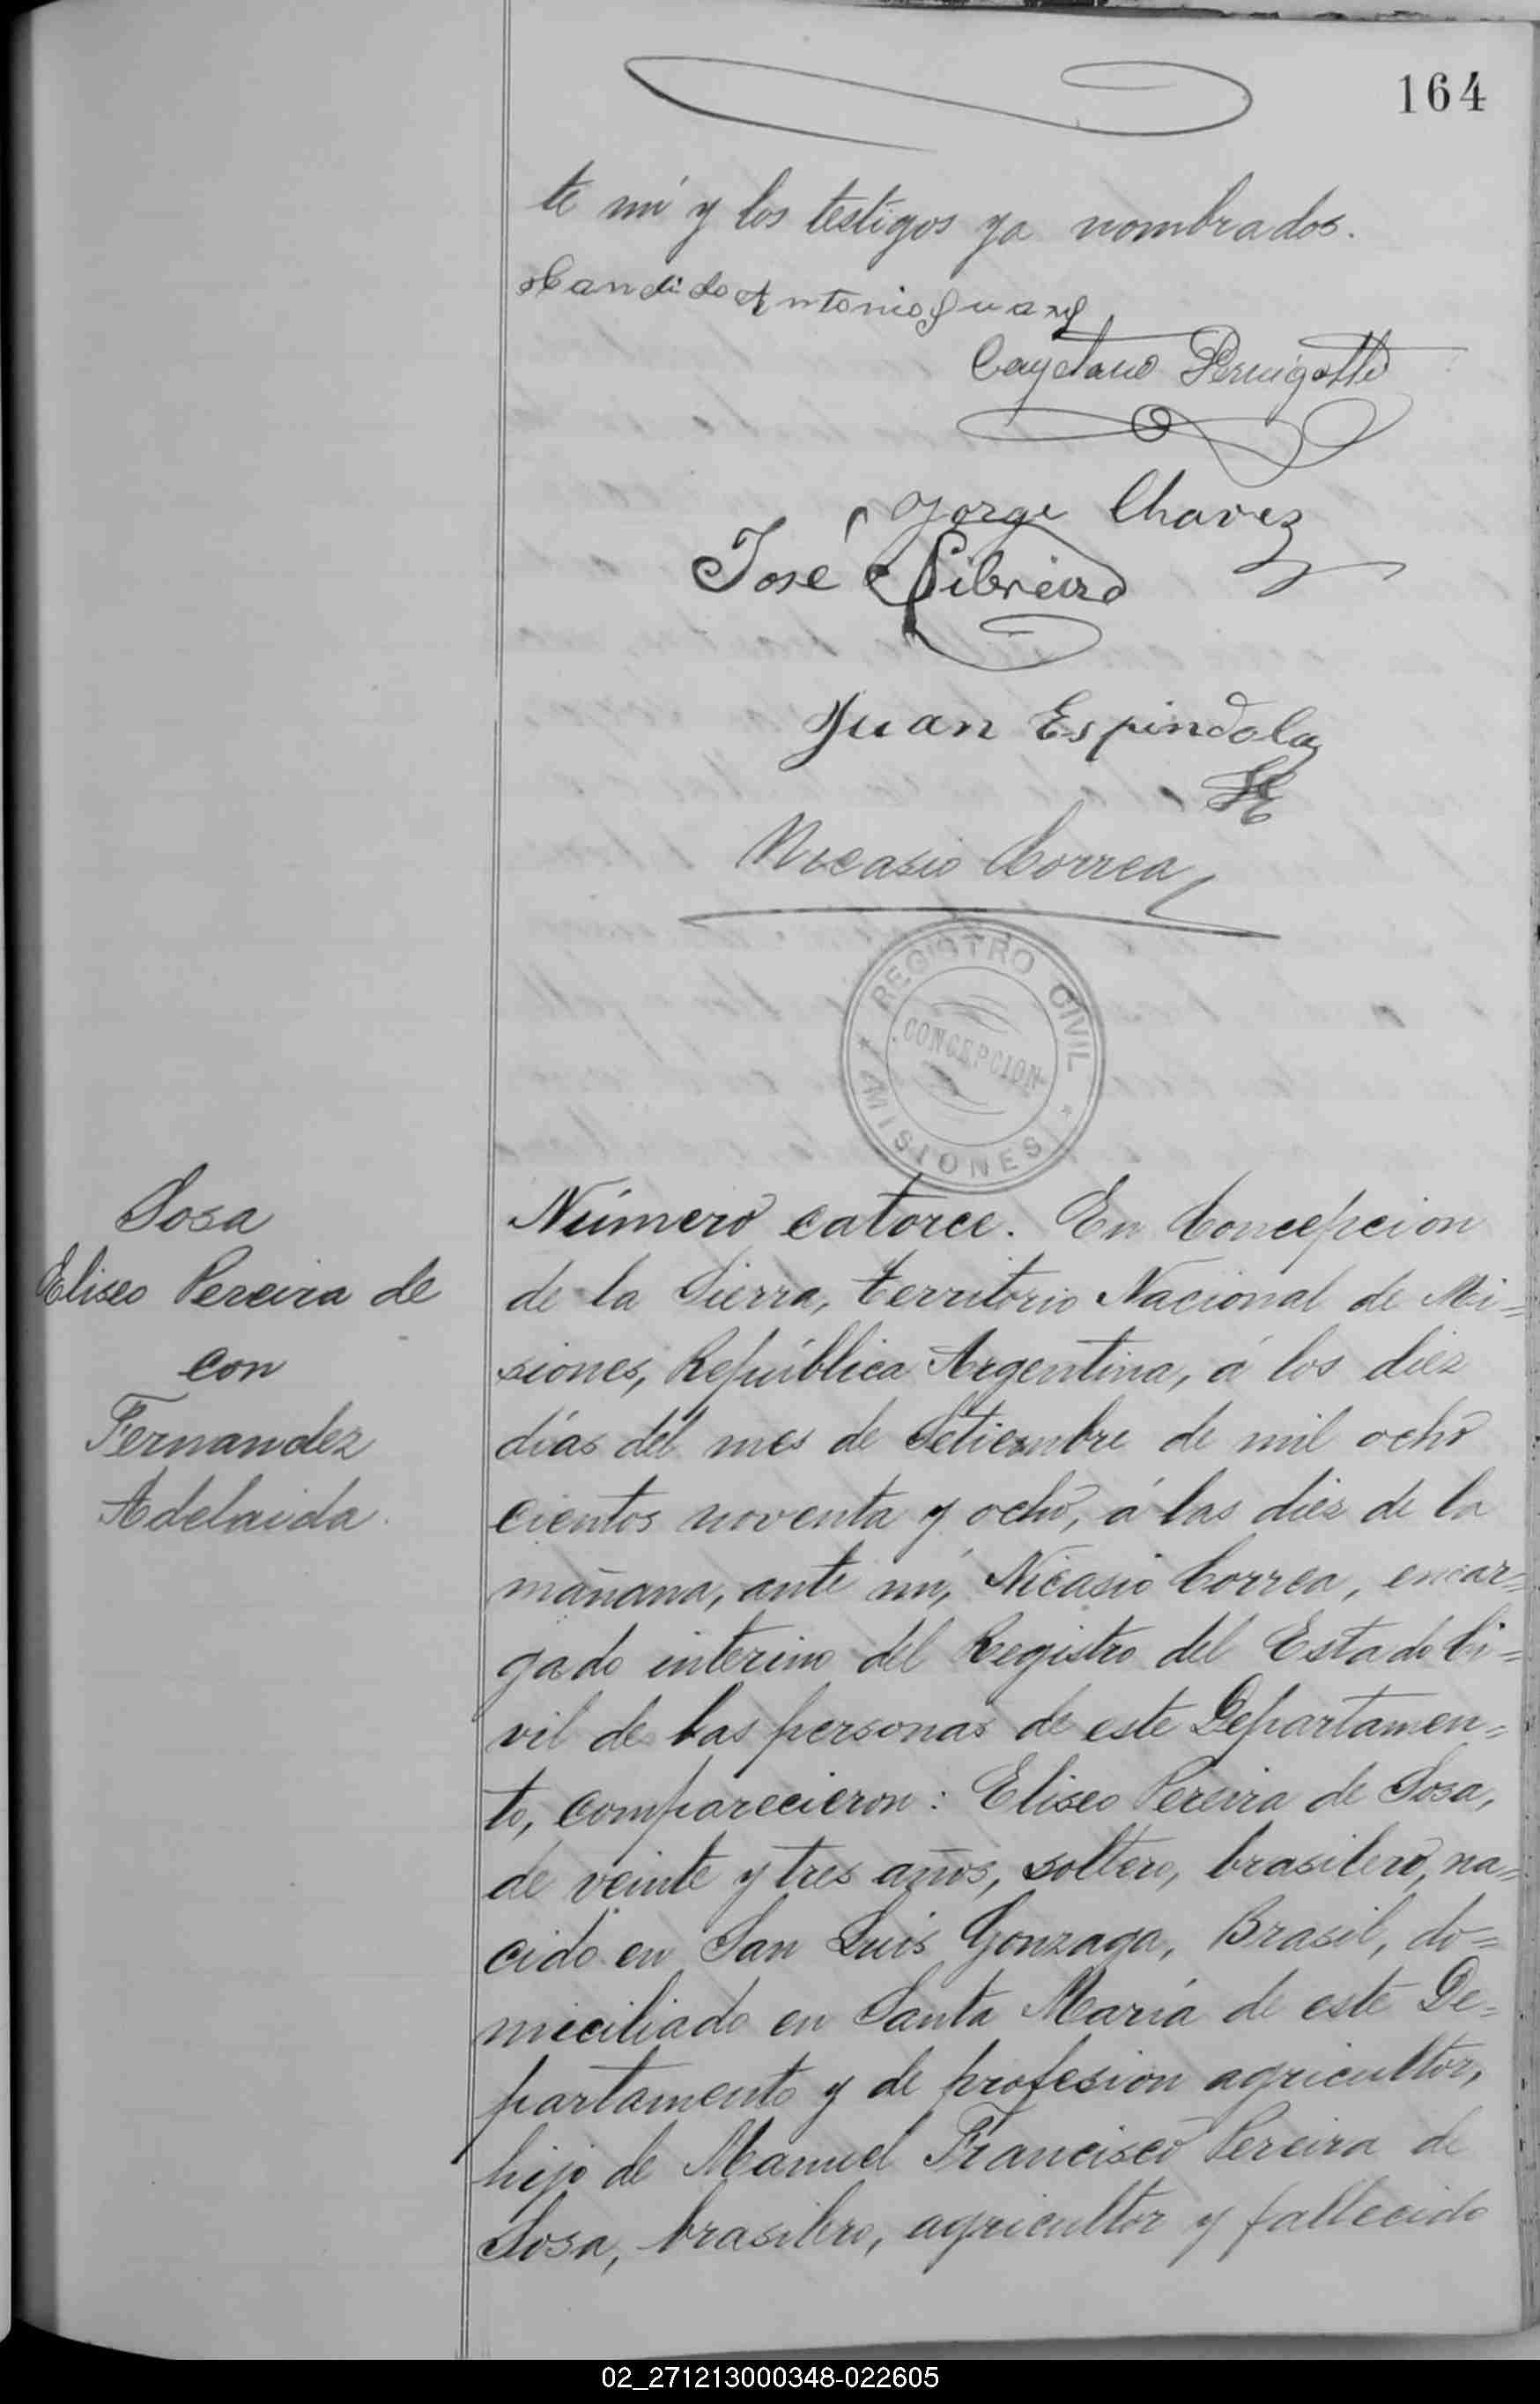 164
te mí y los testigos ya nombrados.
Candido Antonio
Cayetano Pernigotti
Jorge Chavez
José Ribreiro
Juan Espindola
Nicasio Correa
REGISTRO CIVIL
CONCEPCION
MISIONES
Sosa
Eliseo Pereira de
con
Fernandez
Adelaida.
Número catorce. En Concepcion
de la Sierra, territorio Nacional de Mi=
siones, República Argentina, á los diez
días del mes de Setiembre de mil ocho
cientos noventa y ocho, á las diez de la
mañana, ante mí, Nicasio Correa, encar=
gado interino del Registro del Estado Ci=
vil de las personas de este Departamen=
to, comparecieron: Eliseo Pereira de Sosa,
de veinte y tres años, soltero, brasilero, na=
cido en San Luis Gonzaga, Brasil, do=
miciliado en Santa María de este De=
partamento y de profesion agricultor,
hijo de Manuel Francisco Pereira de
Sosa, brasilero, agricultor y fallecido
02_271213000348-022605